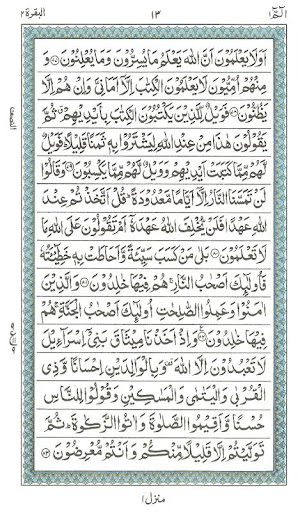 البقرة ٢
١٣
الٓمّٓ ١
اَوَلَا يَعْلَمُوْنَ اَنَّ اللّٰهَ يَعْلَمُ مَا يُسِرُّوْنَ وَمَا يُعْلِنُوْنَ ﴿۷۷﴾ وَ
مِنْهُمْ اُمِّيُّوْنَ لَا يَعْلَمُوْنَ الْكِتٰبَ اِلَّاۤ اَمَانِيَّ وَاِنْ هُمْ اِلَّا
يَظُنُّوْنَ ﴿۷۸﴾ فَوَيْلٌ لِّلَّذِيْنَ يَكْتُبُوْنَ الْكِتٰبَ بِاَيْدِيْهِمْ ۗ ثُمَّ
يَقُوْلُوْنَ هٰذَا مِنْ عِنْدِ اللّٰهِ لِيَشْتَرُوْا بِهٖ ثَمَنًا قَلِيْلًا ۗ فَوَيْلٌ
لَّهُمْ مِّمَّا كَتَبَتْ اَيْدِيْهِمْ وَوَيْلٌ لَّهُمْ مِّمَّا يَكْسِبُوْنَ ﴿۷۹﴾ وَقَالُوْا
لَنْ تَمَسَّنَا النَّارُ اِلَّاۤ اَيَّامًا مَّعْدُوْدَةً ۗ قُلْ اَتَّخَذْتُمْ عِنْدَ
اللّٰهِ عَهْدًا فَلَنْ يُّخْلِفَ اللّٰهُ عَهْدَهٗۤ اَمْ تَقُوْلُوْنَ عَلَى اللّٰهِ مَا
لَا تَعْلَمُوْنَ ﴿۸۰﴾ بَلٰى مَنْ كَسَبَ سَيِّئَةً وَّاَحَاطَتْ بِهٖ خَطِيْۤئَتُهٗ
فَاُولٰٓئِكَ اَصْحٰبُ النَّارِ ۚ هُمْ فِيْهَا خٰلِدُوْنَ ﴿۸۱﴾ وَالَّذِيْنَ
اٰمَنُوْا وَعَمِلُوا الصّٰلِحٰتِ اُولٰٓئِكَ اَصْحٰبُ الْجَنَّةِ ۚ هُمْ
فِيْهَا خٰلِدُوْنَ ﴿۸۲﴾ وَاِذْ اَخَذْنَا مِيْثَاقَ بَنِيْۤ اِسْرَآءِيْلَ
لَا تَعْبُدُوْنَ اِلَّا اللّٰهَ ۫ وَبِالْوَالِدَيْنِ اِحْسَانًا وَّذِى
الْقُرْبٰى وَالْيَتٰمٰى وَالْمَسٰكِيْنِ وَقُوْلُوْا لِلنَّاسِ
حُسْنًا وَّاَقِيْمُوا الصَّلٰوةَ وَاٰتُوا الزَّكٰوةَ ۗ ثُمَّ
تَوَلَّيْتُمْ اِلَّا قَلِيْلًا مِّنْكُمْ وَاَنْتُمْ مُّعْرِضُوْنَ ﴿۸۳﴾
منزل ١